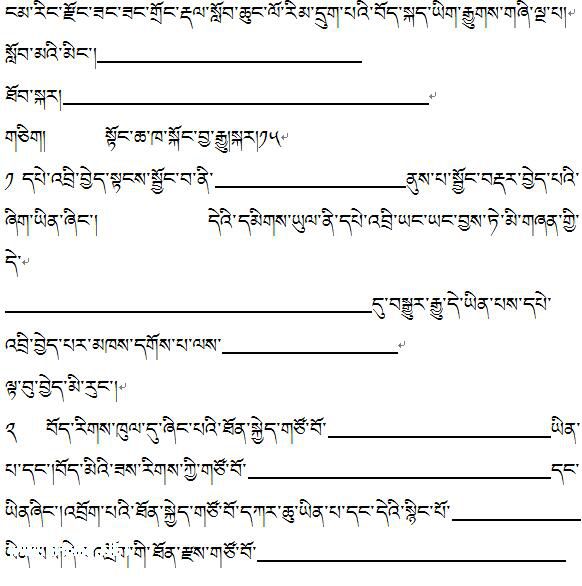 ངམ་རིང་རྫོང་ཟང་ཟང་གྲོང་རྡལ་སློབ་ཆུང་ལོ་རིམ་དྲུག་པའི་བོད་སྐད་ཡིག་རྒྱུགས་གཞི་ལྔ་པ།
སློབ་མའི་མིང་།
ཐོབ་སྐར།
གཅིག། སྟོང་ཆ་ཁ་སྐོང་བྱ་རྒྱུ།སྐར།༡༥
༡ དཔེ་འབྲི་བྱེད་སྟངས་སྦྱོང་བ་ནི་ ནུས་པ་སྦྱོང་བརྡར་བྱེད་པའི་
ཞིག་ཡིན་ཞིང་། དེའི་དམིགས་ཡུལ་ནི་དཔེ་འབྲི་ཡང་ཡང་བྱས་ཏེ་མི་གཞན་གྱི་
དེ་
དུ་བསྒྱུར་རྒྱུ་དེ་ཡིན་པས་དཔེ་
འབྲི་བྱེད་པར་མཁས་དགོས་པ་ལས་
ལྟ་བུ་བྱེད་མི་རུང་།
༢ བོད་རིགས་ཁུལ་དུ་ཞིང་པའི་ཐོན་སྐྱེད་གཙོ་བོ་ ཡིན་
པ་དང་།བོད་མིའི་ཟས་རིགས་ཀྱི་གཙོ་བོ་ དང་
ཡིནཞིང་།འབྲོག་པའི་ཐོན་སྐྱེད་གཙོ་བོ་དཀར་ཆུ་ཡིན་པ་དང་དེའི་སྙིང་པོ་
འབྲོག་གི་ཐོན་རྫས་གཙོ་བོ་